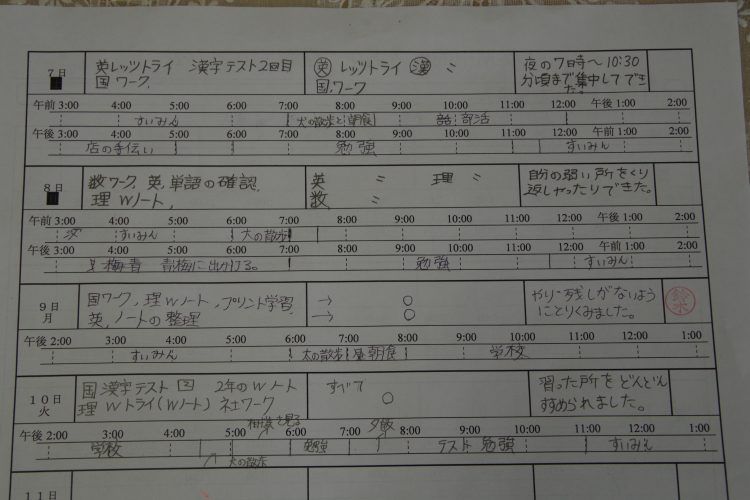 7日
英レッツトライ 漢字テスト2回目
国ワーク.
英 レッツトライ 漢 〃
国.ワーク
夜の7時～10:30
分頃まで集中してでき
た。
午前 3:00 4:00 5:00 6:00 7:00 8:00 9:00 10:00 11:00 12:00 午後 1:00 2:00
すいみん 犬の散歩と朝食 部活
午後 3:00 4:00 5:00 6:00 7:00 8:00 9:00 10:00 11:00 12:00 午前 1:00 2:00
店の手伝い 勉強 すいみん
8日
数ワーク. 英,単語の確認.
理 Wノート,
英 〃 理 〃
数 〃
自分の弱い所をくり
返しやったりできた。
午前 3:00 4:00 5:00 6:00 7:00 8:00 9:00 10:00 11:00 12:00 午後 1:00 2:00
すいみん 犬の散歩
午後 3:00 4:00 5:00 6:00 7:00 8:00 9:00 10:00 11:00 12:00 午前 1:00 2:00
青梅に出かける。 勉強 すいみん
9日
月
国ワーク, 理Wノート, プリント学習,
英,ノートの整理
→ ○
→ ○
やり残しがないよう
にとりくみました。
午後 2:00 3:00 4:00 5:00 6:00 7:00 8:00 9:00 10:00 11:00 12:00 1:00
すいみん 犬の散歩 朝食 学校
10日
火
国漢字テスト 2年のWノート
理Wトライ(Wノート) ネエワーク
すべて
○
習った所をどんどん
すすめられました。
午後 2:00 3:00 4:00 5:00 6:00 7:00 8:00 9:00 10:00 11:00 12:00 1:00
相撲を見る 夕飯
学校 勉強 テスト勉強 すいみん
犬の散歩
11日